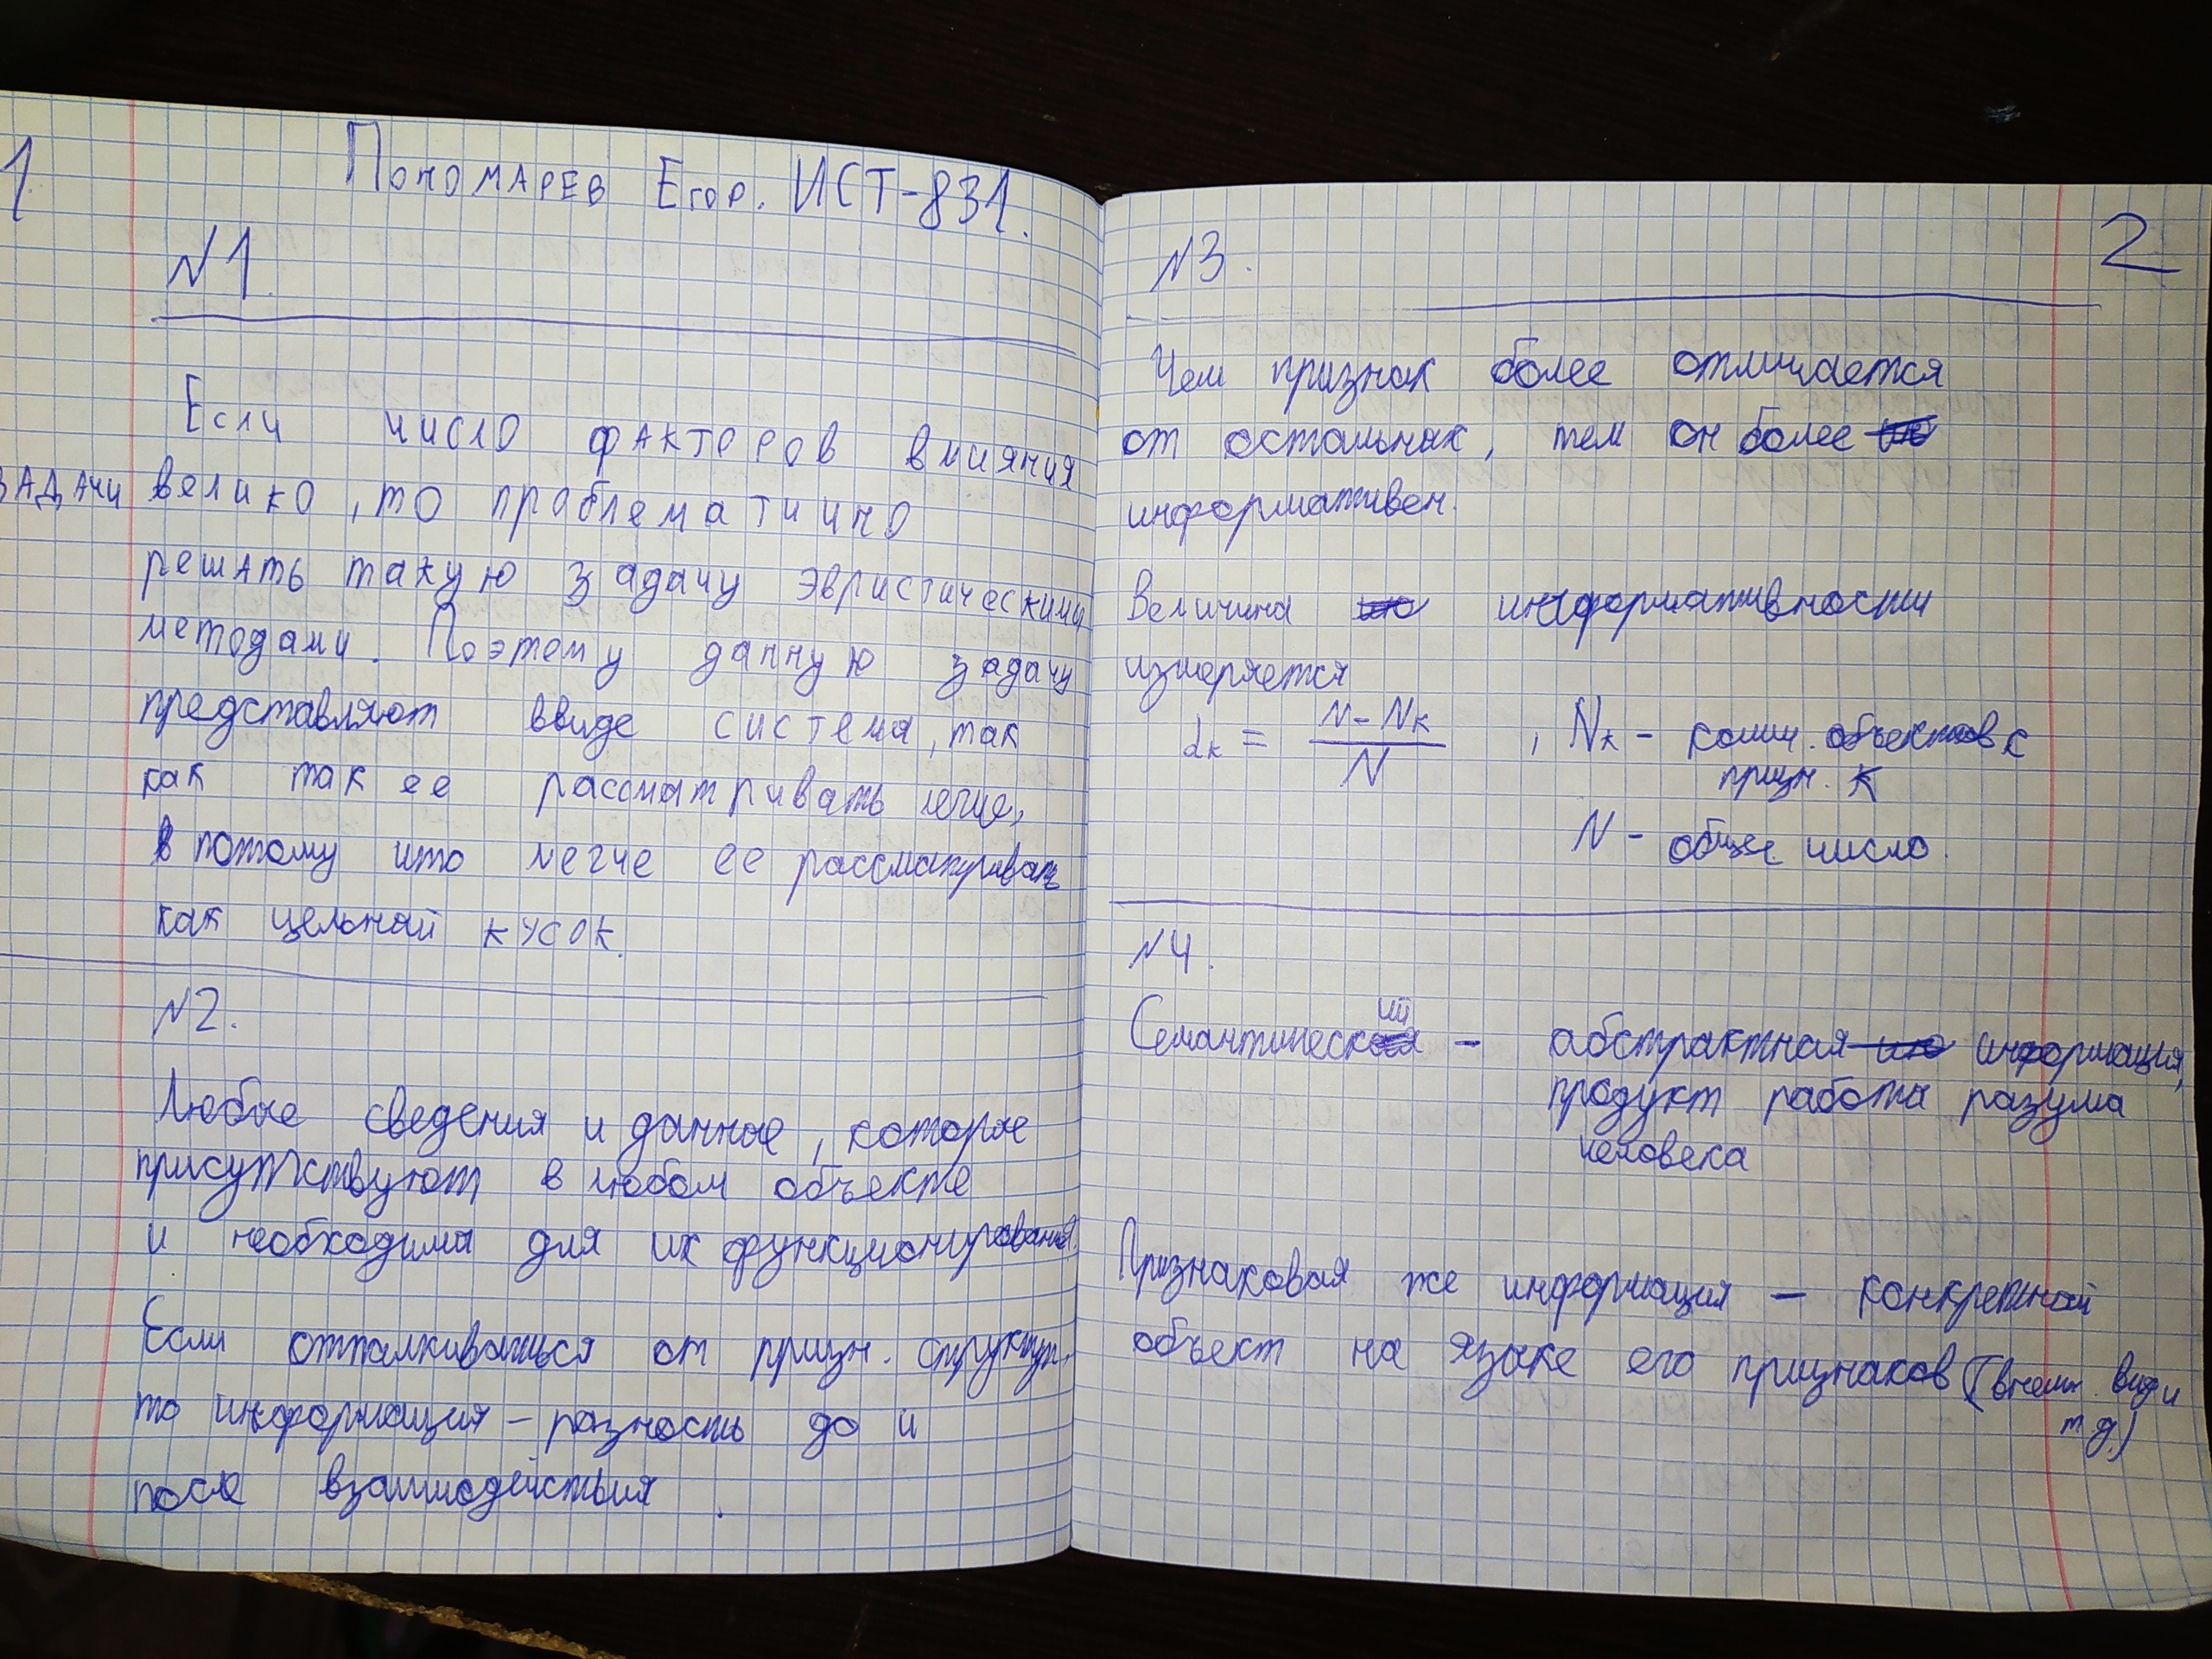 1
Пономарев Егор. ИСТ-831.
№1.
Если число факторов влияния
задачи велико, то проблематично
решать такую задачу эвристическими
методами. Поэтому данную задачу
представляют ввиде системы, так
как так ее рассматривать легче,
потому что легче ее рассматривать
как цельный кусок.
№2.
Любые сведения и данные, которые
присутствуют в любом объекте
и необходимы для их функционирования.
Если отталкиваться от призн. структур,
то информация – разность до и
после взаимодействия.
2
№3.
Чем признак более отличается
от остальных, тем он более
информативен.
Величина информативности
измеряется
dк = N - Nк / N , Nк - колич. объектов с
призн. к
N - общее число.
№4.
Семантический - абстрактная информация,
продукт работы разума
человека
Признаковая же информация – конкретный
объект на языке его признаков (внешн. вид и
т.д.)